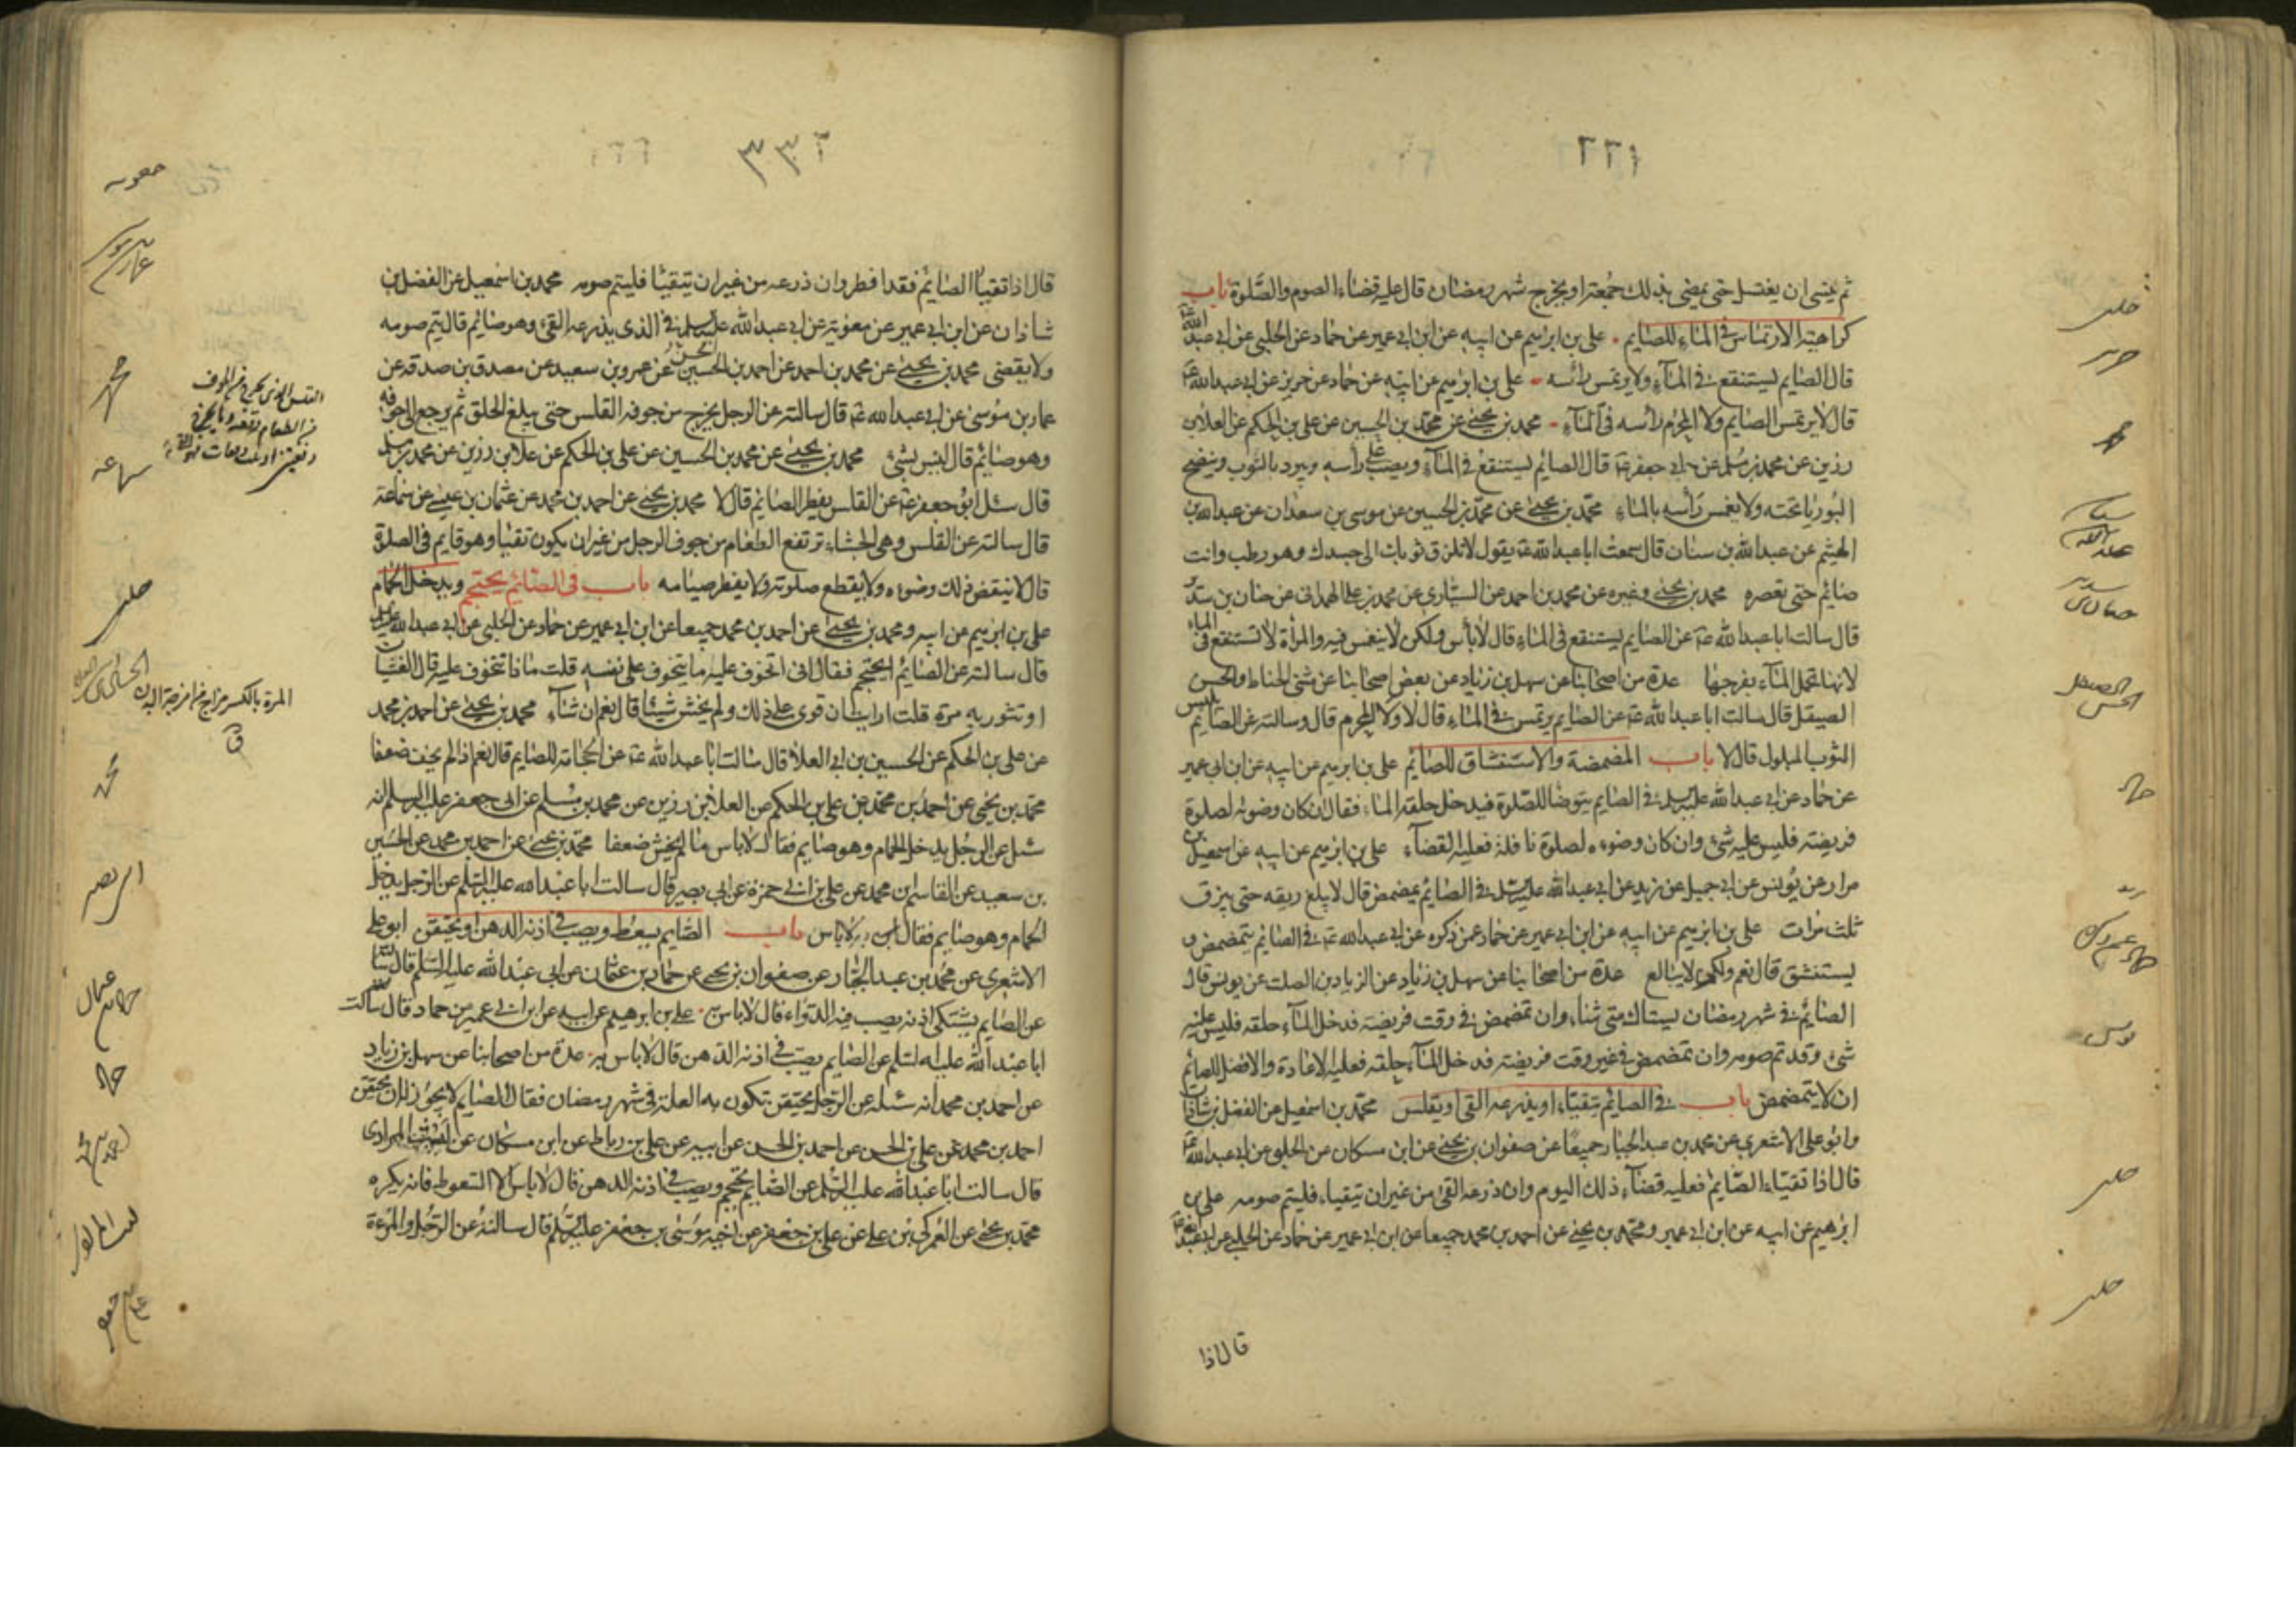 ٢٢١
ثم ينسى ان يغتسل حتى يمضى بذلك جمعته او يخرج شهر رمضان قال عليه قضاء الصوم والصلوة باب
كراهية الارتماس فى الماء للصايم علي بن ابرهيم عن ابيه عن ابن ابي عمير عن حماد عن الحلبي عن ابي عبد الله ع
قال الصايم يستنقع في المآء ولا يرتمس رأسه علي بن ابرهيم عن ابيه عن حماد عن حريز عن ابي عبد الله ع
قال لا يرتمس الصايم ولا المحرم رأسه فى المآء محمد بن يحيى عن محمد بن الحسين عن علي بن الحكم عن العلا بن
رزين عن محمد بن مسلم عن ابي جعفر ع قال الصايم يستنقع فى المآء ويصب على رأسه ويبرد بالثوب وينضح
البوريا تحته ولا يغمس رأسه بالماء محمد بن يحيى عن محمد بن الحسين عن موسى بن سعدان عن عبد الله بن
الهيثم عن عبد الله بن سنان قال سمعت ابا عبد الله ع يقول لا تلزق ثوبك الى جسدك وهو رطب وانت
صايم حتى تعصره محمد بن يحيى وغيره عن محمد بن احمد عن السياري عن محمد بن علي الهمداني عن حنان بن سدير
قال سالت ابا عبد الله ع عن الصايم يستنقع فى الماء قال لا بأس ولكن لا ينغمس فيه والمرأة لا تستنقع فى الماء
لانها تحمل المآء بفرجها عدة من اصحابنا عن سهل بن زياد عن بعض اصحابنا عن مثنى الحناط والحسن
الصيقل قال سالت ابا عبد الله ع عن الصايم يرتمس في الماء قال لا ولا المحرم قال وسالته عن الصايم يلبس
الثوب المبلول قال لا باب المضمضة والاستنشاق للصايم علي بن ابرهيم عن ابيه عن ابن ابي عمير
عن حماد عن ابي عبد الله عليه السلم في الصايم يتوضا للصلوة فيدخل حلقه الماء فقال ان كان وضوئه لصلوة
فريضة فليس عليه شئ وان كان وضوءه لصلوة نافلة فعليه القضآء علي بن ابرهيم عن ابيه عن اسمعيل بن
مرار عن يونس عن ابي جميل عن زيد عن ابي عبد الله عليه السلم في الصايم يمضمض قال لا يبلع ريقه حتى يبزق
ثلث مرات علي بن ابرهيم عن ابيه عن ابن ابي عمير عن حماد عمن ذكره عن ابي عبد الله ع في الصايم يتمضمض و
يستنشق قال نعم ولكن لا يبالغ عدة من اصحابنا عن سهل بن زياد عن الريان بن الصلت عن يونس قال
الصايم فى شهر رمضان يستاك متى شاء وان تمضمض فى وقت فريضة فدخل المآء حلقه فليس عليه
شئ وقد تم صومه وان تمضمض فى غير وقت فريضة فدخل المآء حلقه فعليه الاعادة والافضل للصائم
ان لا يتمضمض باب في الصايم يتقيّاء او يذرعه القى او يقلس محمد بن اسمعيل عن الفضل بن شاذان
وابو علي الاشعري عن محمد بن عبد الجبار جميعًا عن صفوان بن يحيى عن ابن مسكان عن الحلبي عن ابي عبد الله ع
قال اذا تقيّاء الصّايم فعليه قضآء ذلك اليوم وان ذرعه القى من غير ان يتقياء فليتم صومه علي بن
ابرهيم عن ابيه عن ابن ابي عمير ومحمد بن يحيى عن احمد بن محمد جميعا عن ابن ابي عمير عن حماد عن الحلبي عن ابي عبد الله ع
قال اذا
حلبى
حريز
الحسن الصيقل
حماد
يونس
حلبى
حلبى
٣٣٢
قال اذا تقيأ الصايم فقد افطر وان ذرعه من غير ان يتقيئا فليتم صومه محمد بن اسمعيل عن الفضل بن
شاذان عن ابن ابي عمير عن معوية عن ابي عبد الله عليه السلم في الذى يذرعه القى وهو صايم قال يتم صومه
ولا يقضى محمد بن يحيى عن محمد بن احمد عن احمد بن الحسين عن عمرو بن سعيد عن مصدق بن صدقه عن
عمار بن موسى عن ابي عبد الله ع قال سالته عن الرجل يخرج من جوفه القلس حتى يبلغ الحلق ثم يرجع الى جوفه
وهو صايم قال ليس بشئ محمد بن يحيى عن محمد بن الحسين عن علي بن الحكم عن علا بن رزين عن محمد بن مسلم
قال سئل ابو جعفر ع عن القلس يفطر الصايم قال لا محمد بن يحيى عن احمد بن محمد عن عثمان بن عيسى عن سماعة
قال سالته عن القلس وهى الجشاء ترتفع الطعام من جوف الرجل من غير ان يكون تقيا وهو قايم فى الصلوة
قال لا ينقض ذلك وضوءه ولا يقطع صلوته ولا يفطر صيامه باب فى الصايم يحتجم ويدخل الحمام
علي بن ابرهيم عن ابيه ومحمد بن يحيى عن احمد بن محمد جميعا عن ابن ابي عمير عن حماد عن الحلبي عن ابي عبد الله عليه السلم
قال سالته عن الصايم ايحتجم فقال انى اتخوف عليه ما يتخوف على نفسه قلت ماذا تتخوف عليه قال الغشيان
او تثور به مرة قلت ارايت ان قوى على ذلك ولم يخش شيئا قال نعم ان شآء محمد بن يحيى عن احمد بن محمد
عن علي بن الحكم عن الحسين بن ابي العلا قال سالت ابا عبد الله ع عن الحجامة للصايم قال نعم اذا لم يخف ضعفا
محمد بن يحيى عن احمد بن محمد عن علي بن الحكم عن العلا بن رزين عن محمد بن مسلم عن ابي جعفر عليه السلم انه
سئل عن الرجل يدخل الحمام وهو صايم فقال لا باس ما لم يخش ضعفا محمد بن يحيى عن احمد بن محمد عن الحسين
بن سعيد عن القاسم بن محمد عن علي بن ابي حمزة عن ابي بصير قال سالت ابا عبد الله عليه السلم عن الرجل يدخل
الحمام وهو صايم فقال لا باس باب الصايم يسعط ويصب فى اذنه الدهن او يحتقن ابو علي
الاشعري عن محمد بن عبد الجبار عن صفوان بن يحيى عن حماد بن عثمان عن ابي عبد الله عليه السلم قال سالته
عن الصايم يشتكى اذنه يصب فيه الدواء قال لا باس به علي بن ابرهيم عن ابيه عن ابن ابي عمير عن حماد قال سالت
ابا عبد الله عليه السلم عن الصايم يصب فى اذنه الدهن قال لا باس به عدة من اصحابنا عن سهل بن زياد
عن احمد بن محمد انه سئله عن الرجل يحتقن تكون به العلة فى شهر رمضان فقال الصايم لا يجوز له ان يحتقن
احمد بن محمد عن علي بن الحسن عن احمد بن الحسن عن ابيه عن علي بن رباط عن ابن مسكان عن ليث المرادى
قال سالت ابا عبد الله عليه السلم عن الصايم يحتجم ويصب فى اذنه الدهن قال لا باس الا السعوط فانه يكره
محمد بن يحيى عن العمركي بن علي عن علي بن جعفر عن اخيه موسى بن جعفر عليه السلم قال سالته عن الرجل والمرءة
معويه
عمار بن موسى
محمد
سماعه
حلبى
المرة بالكسر مزاج من امزجة البدن
ق
محمد
ابى بصير
حماد بن عثمان
حماد
ليث المرادى
علي بن جعفر